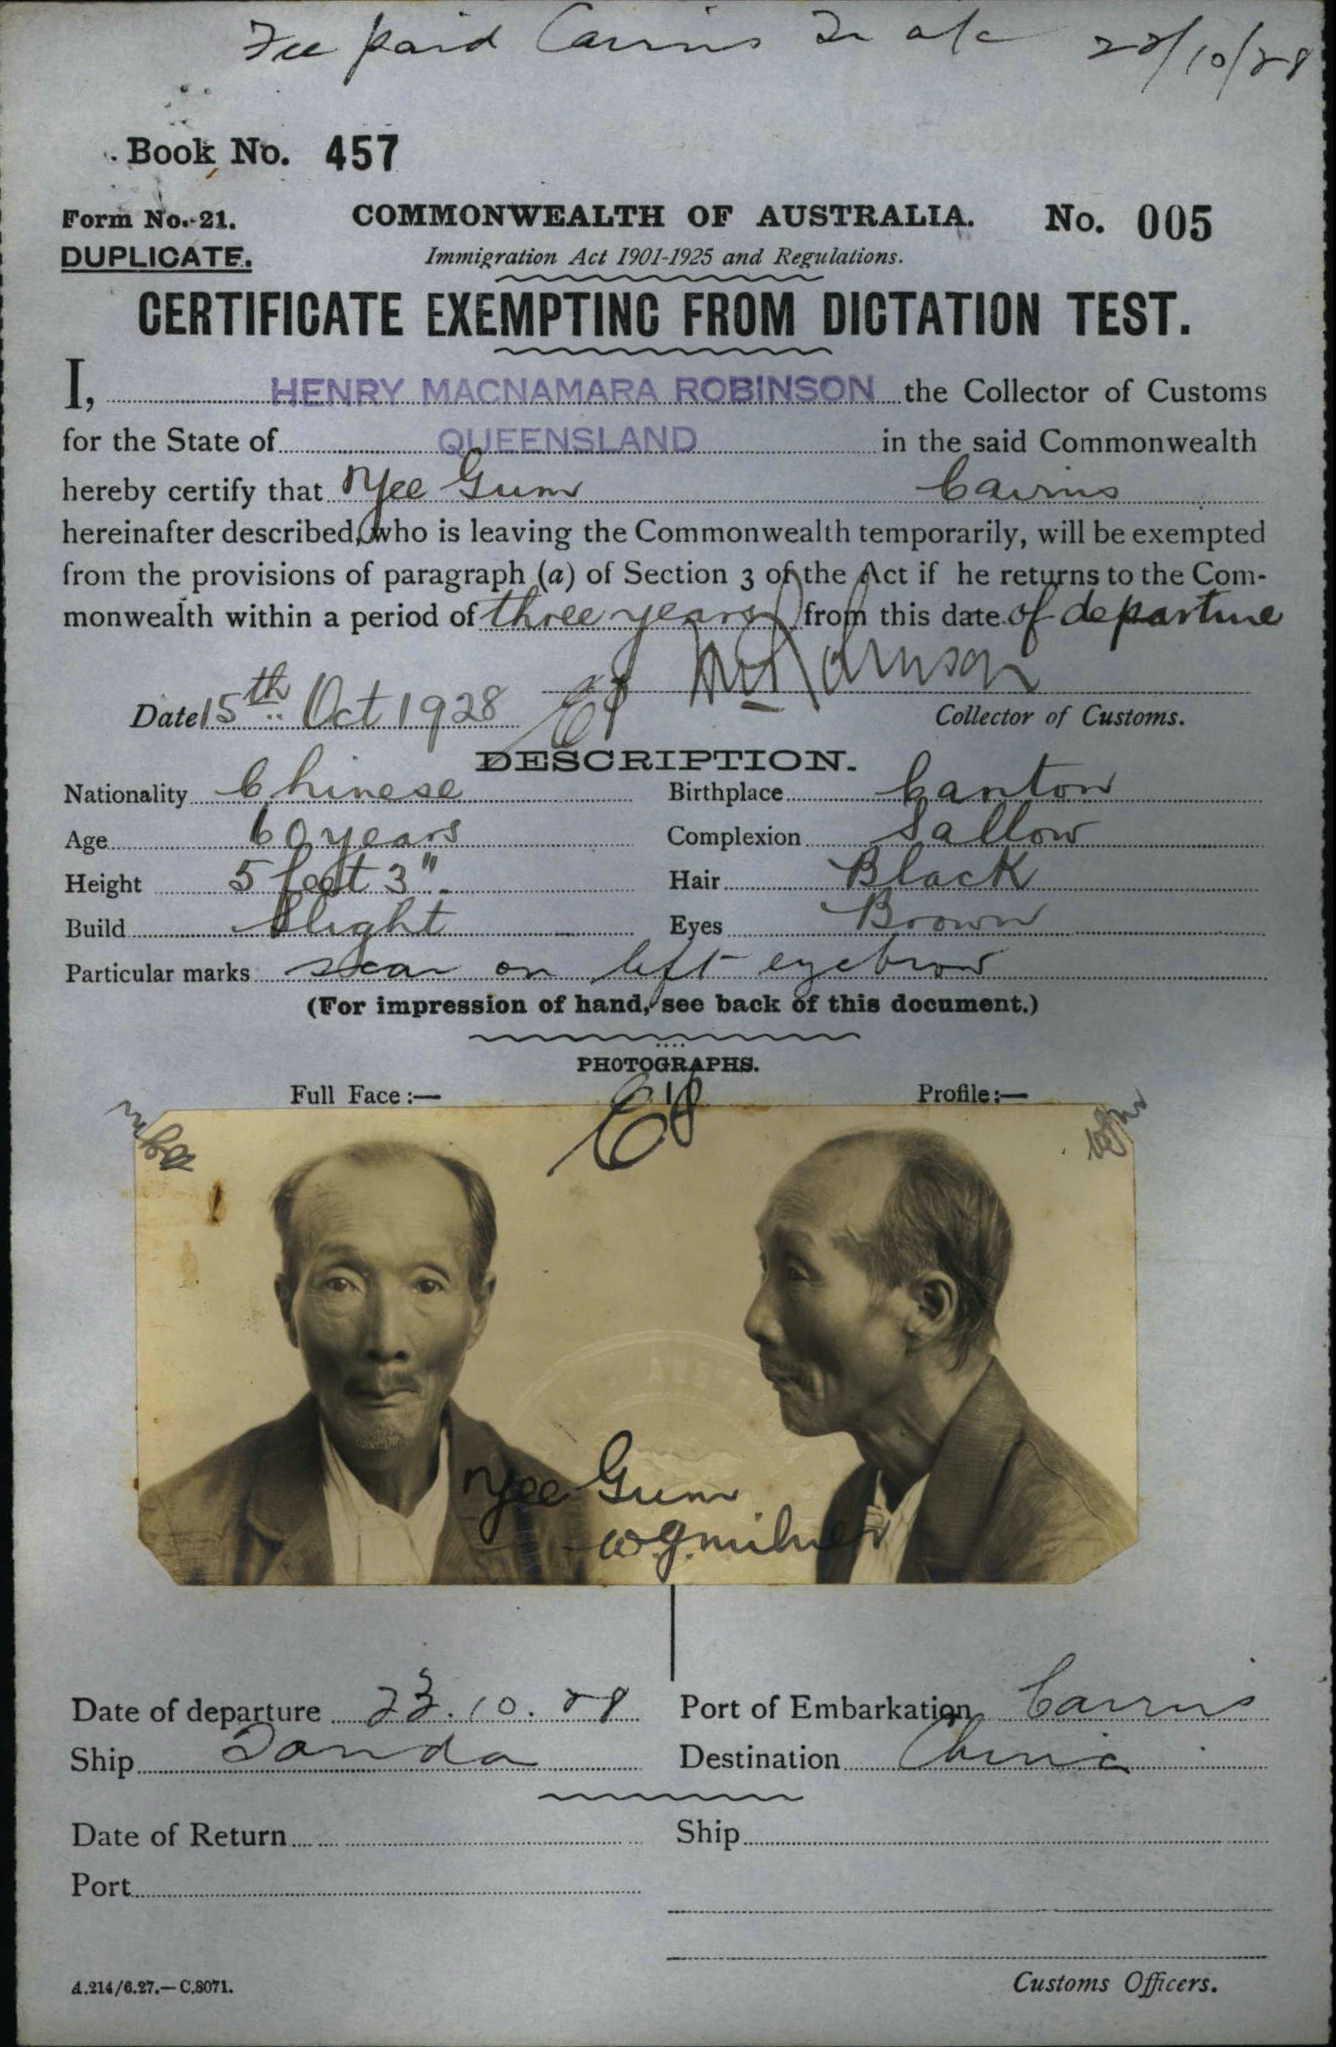 Fee paid Cairns 22/10/28
Book No. 457
Form No. 21. COMMONWEALTH OF AUSTRALIA. No. 005
DUPLICATE. Immigration Act 1901-1925 and Regulations.
CERTIFICATE EXEMPTING FROM DICTATION TEST.
I, HENRY MACNAMARA ROBINSON the Collector of Customs
for the State of QUEENSLAND in the said Commonwealth
hereby certify that Yee Gum Cairns
hereinafter described, who is leaving the Commonwealth temporarily, will be exempted
from the provisions of paragraph (a) of Section 3 of the Act if he returns to the Com-
monwealth within a period of three years from this date of departure
HMRobinson
Date 15th Oct 1928 Collector of Customs.
DESCRIPTION.
Nationality Chinese Birthplace Canton
Age 60 years Complexion Sallow
Height 5 feet 3". Hair Black
Build Slight Eyes Brown
Particular marks scar on left eyebrow
(For impression of hand, see back of this document.)
PHOTOGRAPHS.
Full Face:— Profile:—
Yee Gum
W.G. Milner
Date of departure 23.10.28 Port of Embarkation Cairns
Ship Tanda Destination China
Date of Return Ship
Port
A.214/6.27.—C.8071. Customs Officers.